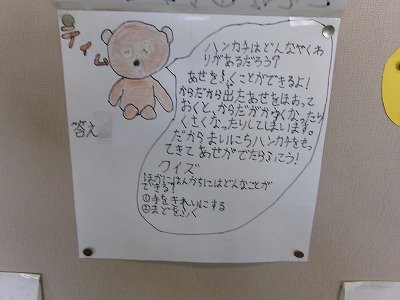 テイム
ハンカチはどんなやくわ
りがあるだろう?
あせをふくことができるよ!
からだから出たあせをほおって
おくと、からだがかゆくなったり
くさくなったりしてしまいます。
だからまいにちハンカチをもっ
てきてあせがでたらふこう!
クイズ
ほかにはんかちにはどんなことが
できる?
①手をきれいにする
②まどをふく
答え